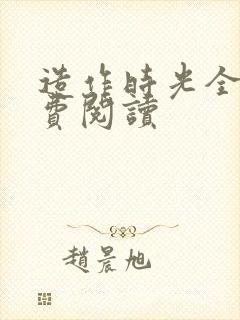 造作時光全
費閱讀
趙晨旭